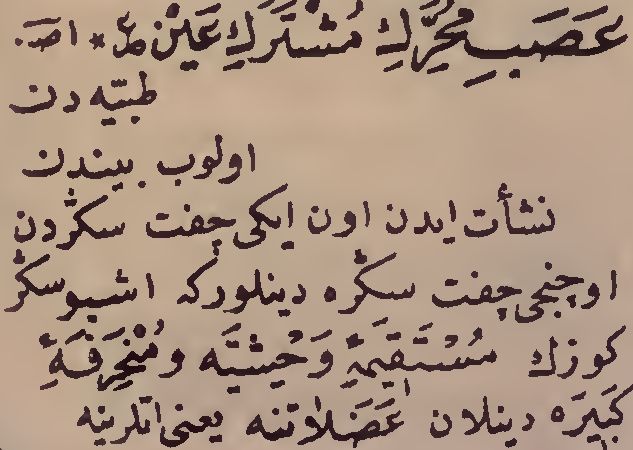 عَصَبِ مُحَرِّكِ مُشْتَرَكِ عَيْنْ ع * اص.
طبیّه دن
اولوب بیندن
نشأت ایدن اون ایكی چفت سكڭردن
اوچنجی چفت سكڭره دینلوركه اشبو سكڭر
كوزك مُسْتَقِيمَۀِ وَحْشِيَّه و مُنْحَرِفَۀِ
كَبِيرَه دینلان عَضَلاتنه یعنی اتلرینه